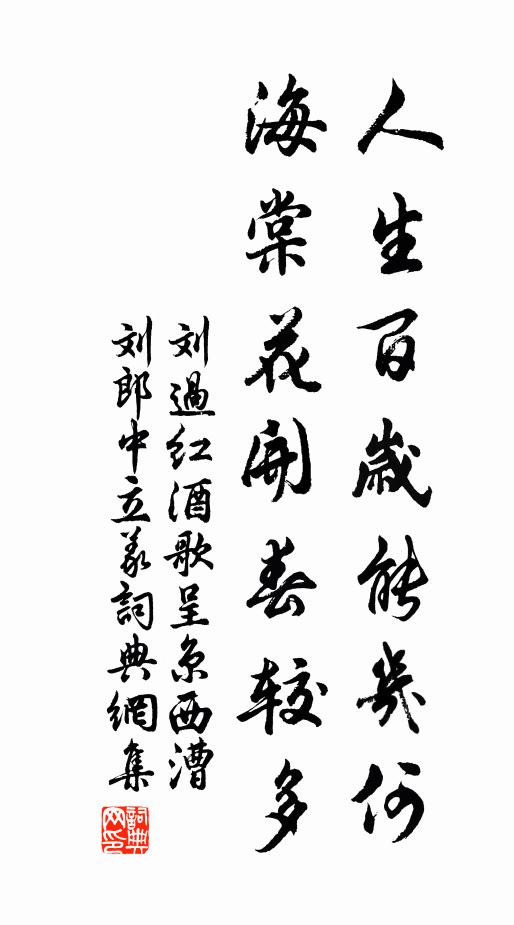 人生百歲能幾何
海棠花開春較多
刘過紅酒歌呈京西漕
刘郎中立義詞典網集
詞典網印